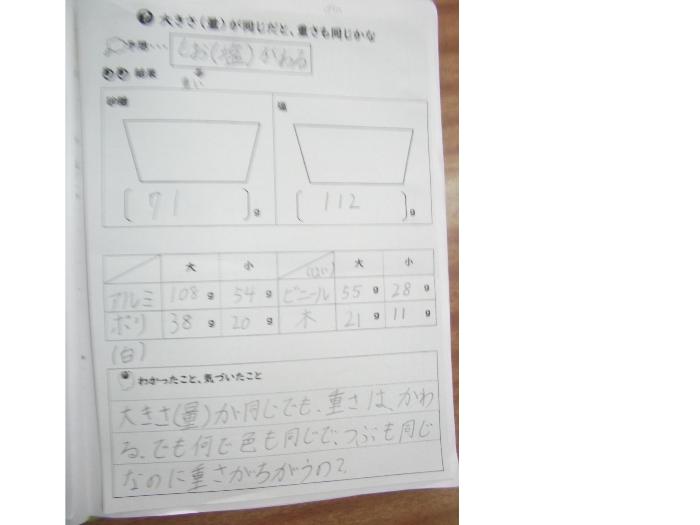 大きさ(量)が同じだと、重さも同じかな
予想・・・ しお(塩)かわる
結果
砂糖
塩
[ 71 ]g
[ 112 ]g
大 小 大 小
アルミ 108 g 54 g ビニール 55 g 28 g
ポリ 38 g 20 g 木 21 g 11 g
(白)
わかったこと、気づいたこと
大きさ(量)が同じでも、重さは、かわ
る。でも何で色も同じで、つぶも同じ
なのに重さがちがうの?